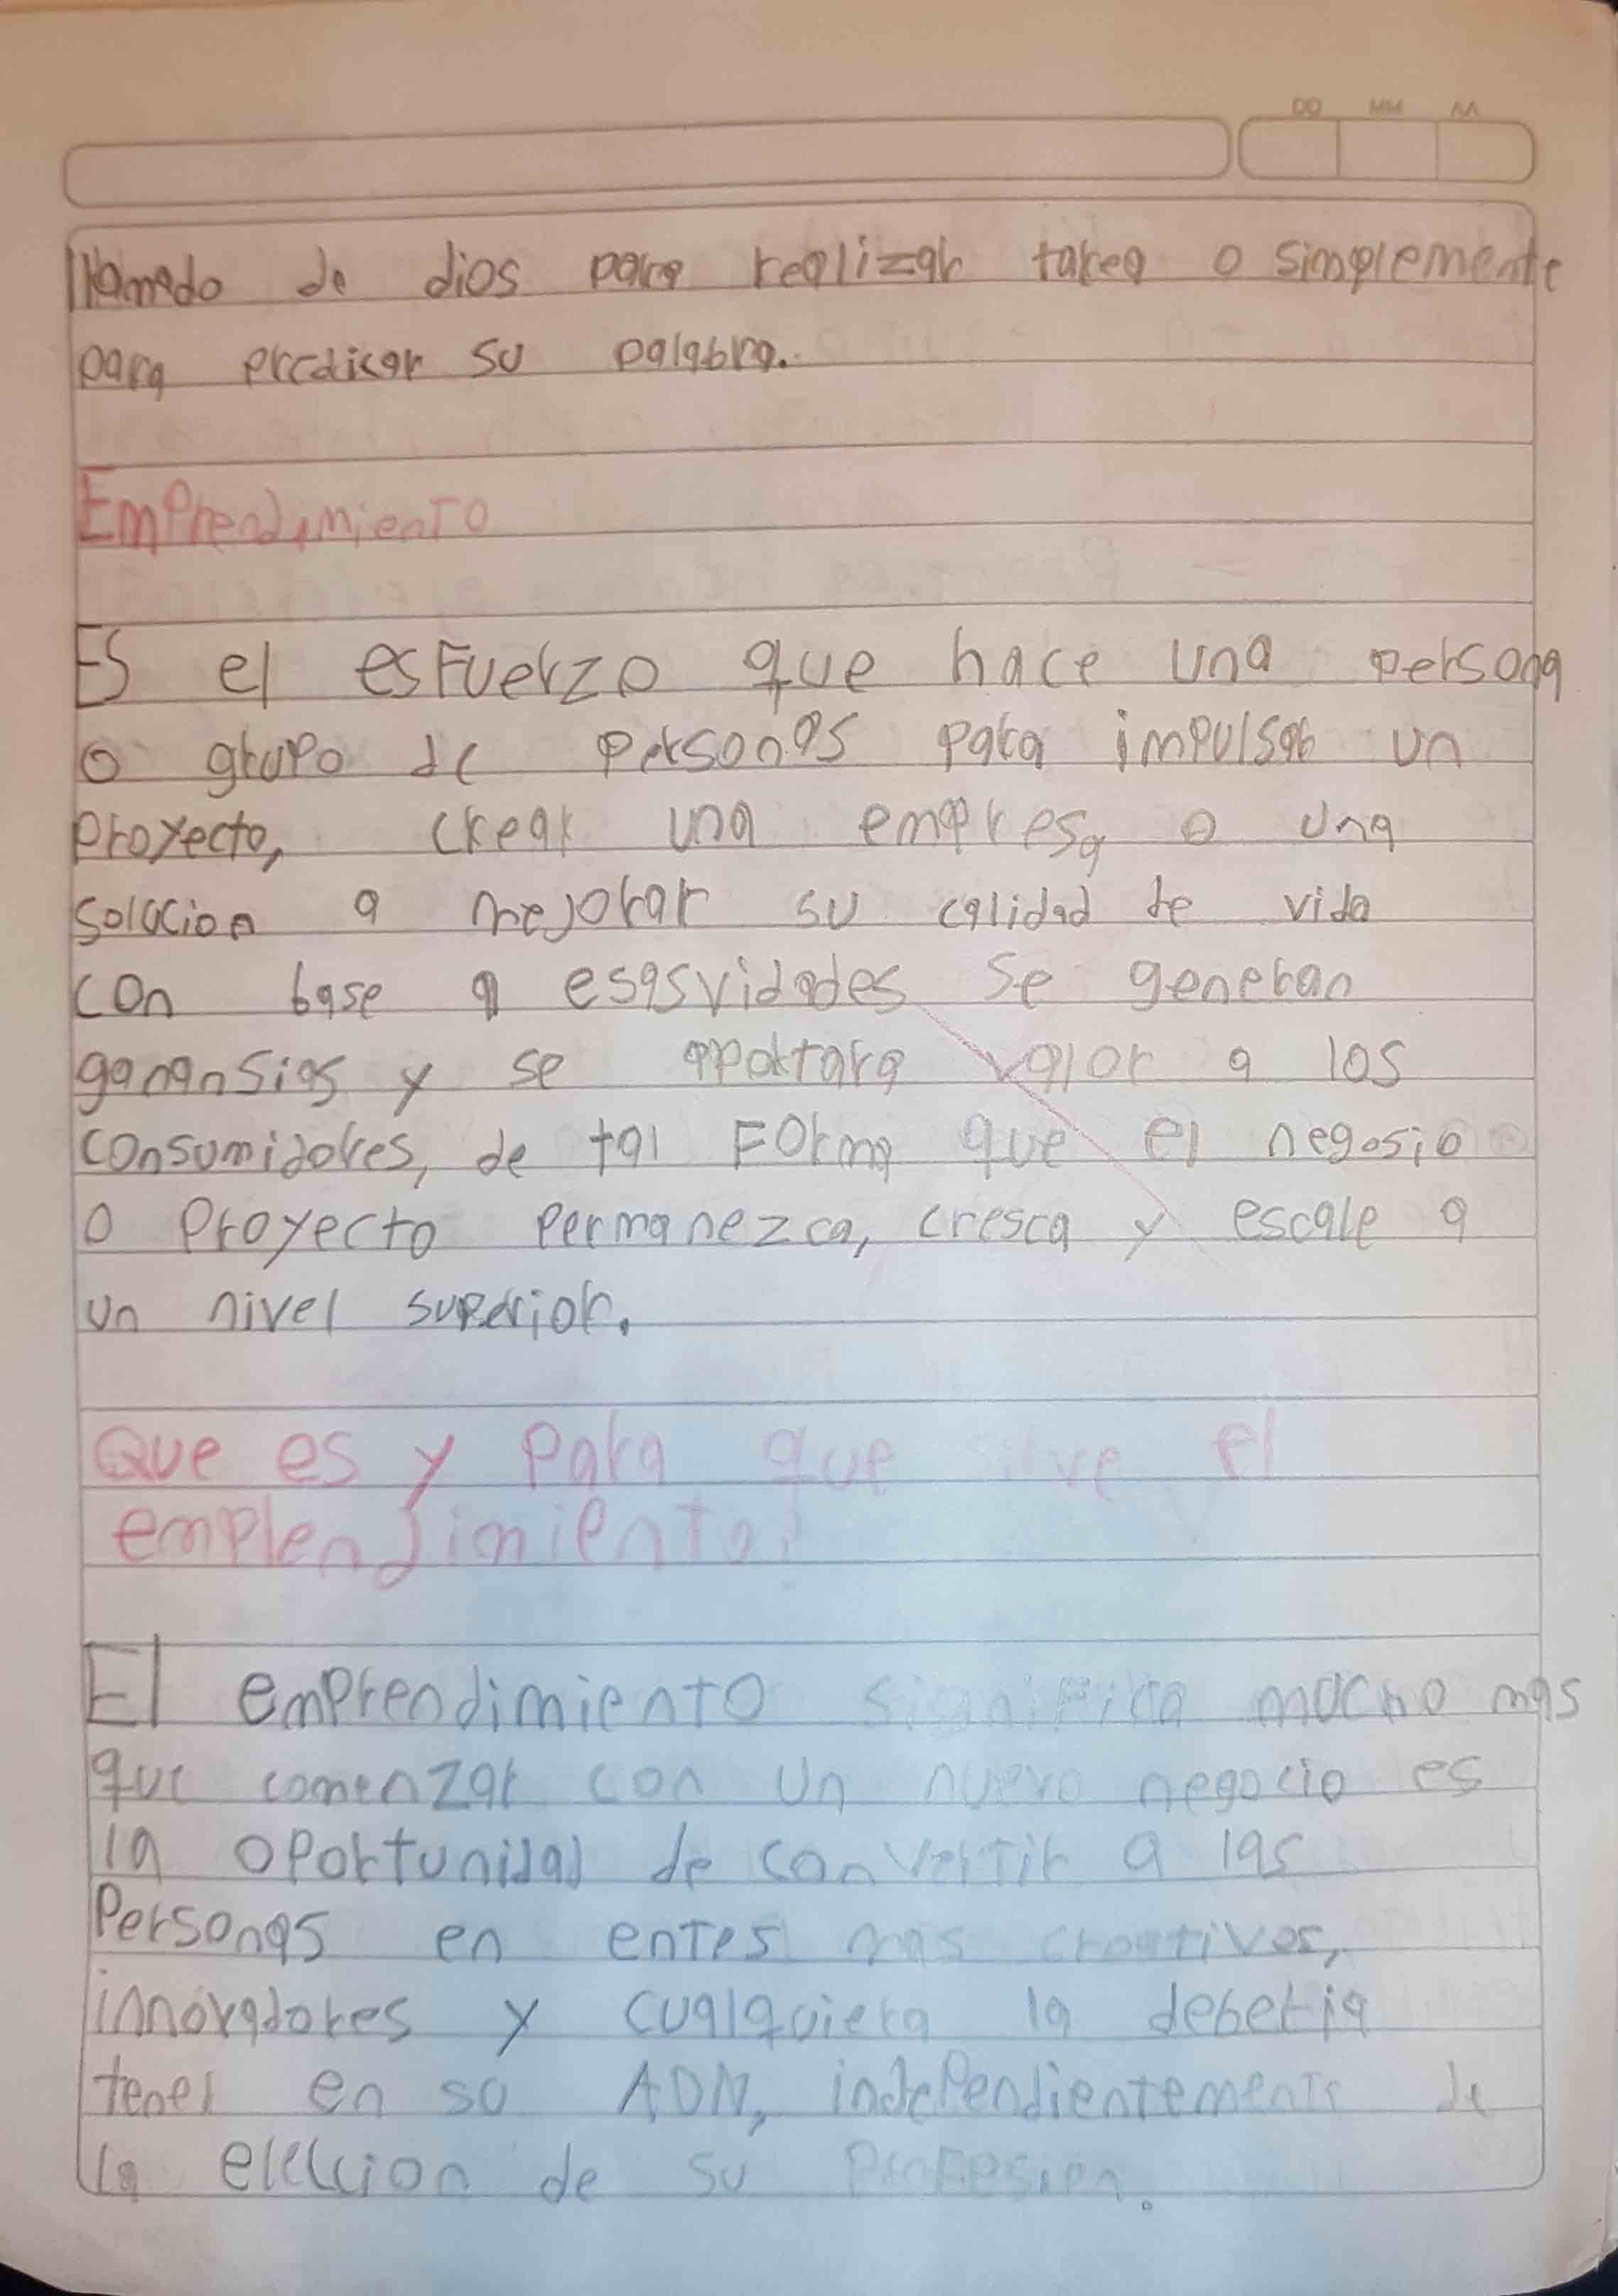 DD MM AA
llamado de dios para realizar tarea o simplemente
para predicar su palabra.
Emprendimiento
Es el esfuerzo que hace una persona
o grupo de personas para impulsar un
proyecto, crear una empresa o una
solucion a mejorar su calidad de vida
con base a esasvidades se generan
ganansias y se aportara valor a los
consumidores, de tal Forma que el negosio
o proyecto permanezca, cresca y escale a
un nivel superior.
Que es y Para que sirve el
emplendimiento?
El emprendimiento significa mucho mas
que comenzar con un nuevo negocio es
la oportunidad de convertir a las
Personas en entes mas creativos,
innovadores y cualquiera la deberia
tener en su ADN, independientemente de
la eleccion de su profesion.